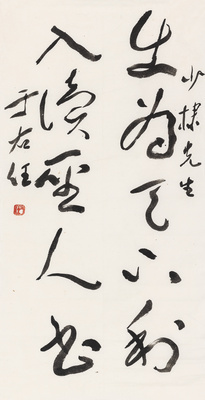 少棣先生
生為天下利
入讀聖人書
于右任